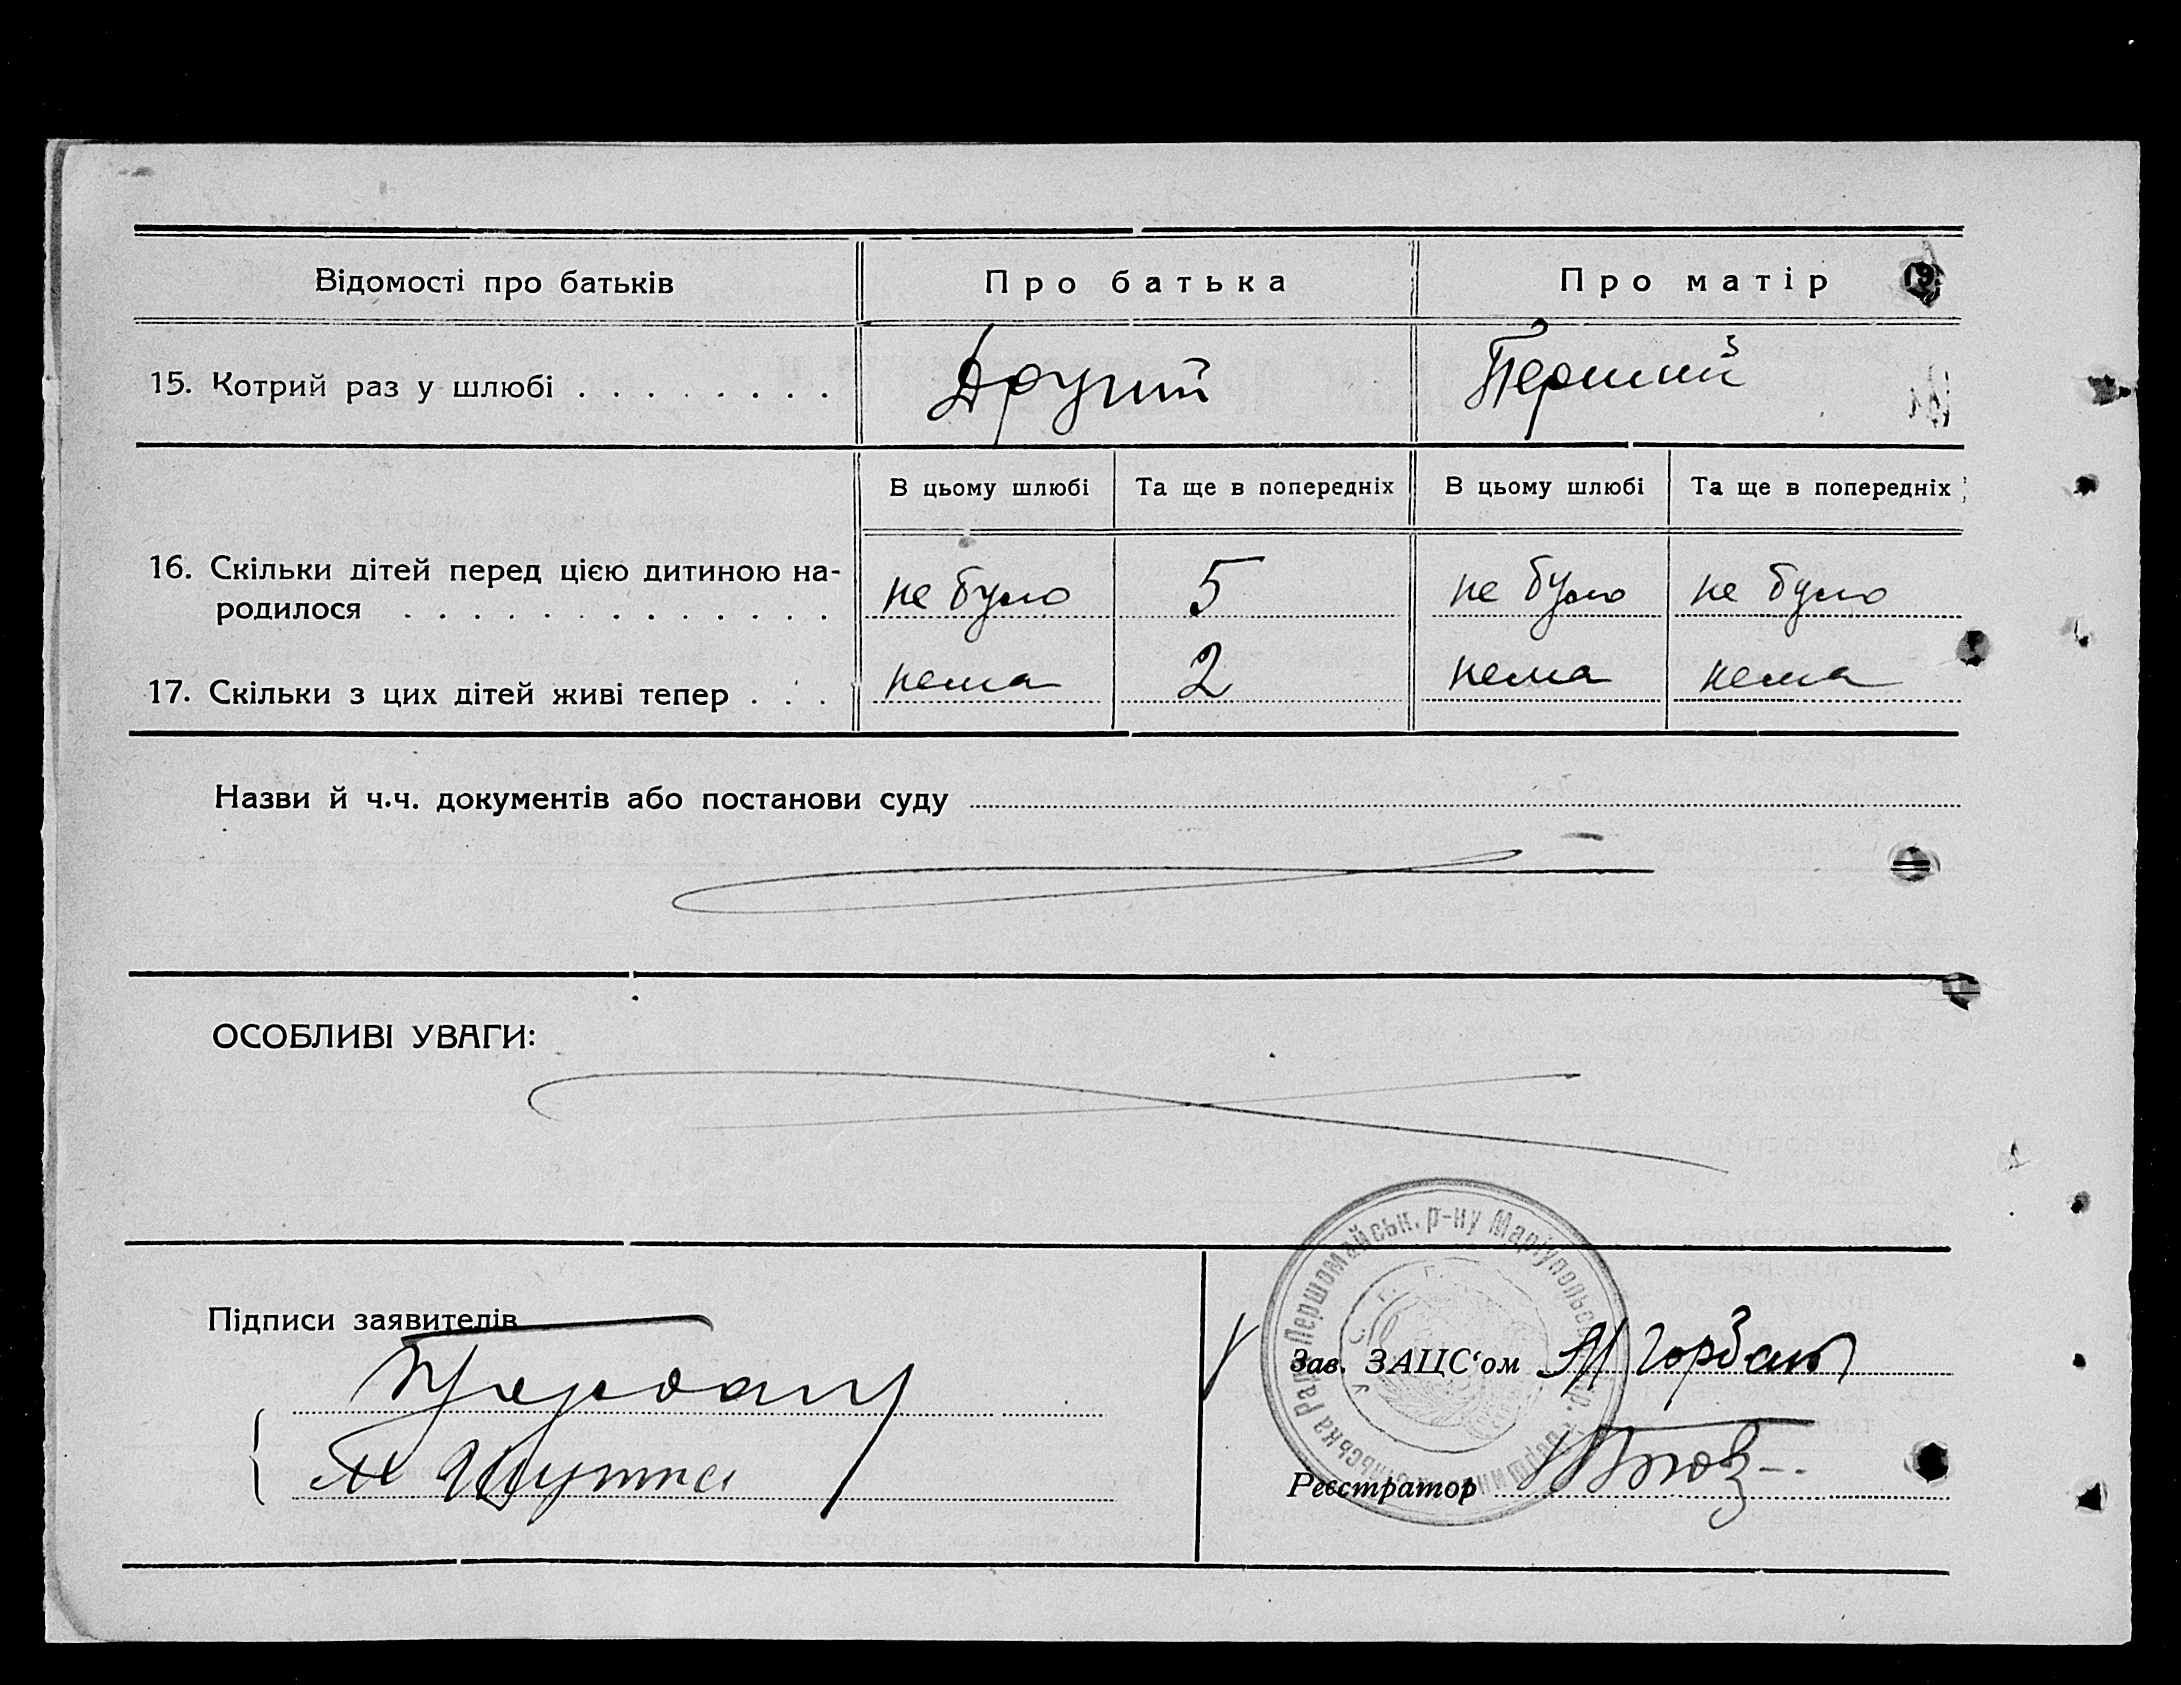 Відомості про батьків Про батька Про матір
15. Котрий раз у шлюбі . . . . . . . . Другий Перший
В цьому шлюбі Та ще в попередніх В цьому шлюбі Та ще в попередніх
16. Скільки дітей перед цією дитиною на-
родилося . . . . . . . . . . . . . не було 5 не було не було
17. Скільки з цих дітей живі тепер . . . нема 2 нема нема
Назви й ч.ч. документів або постанови суду
ОСОБЛИВІ УВАГИ:
Першомайськ. р-ну Маріупольськ
Підписи заявителів
Зав. ЗАЦС‘ом
Реєстратор